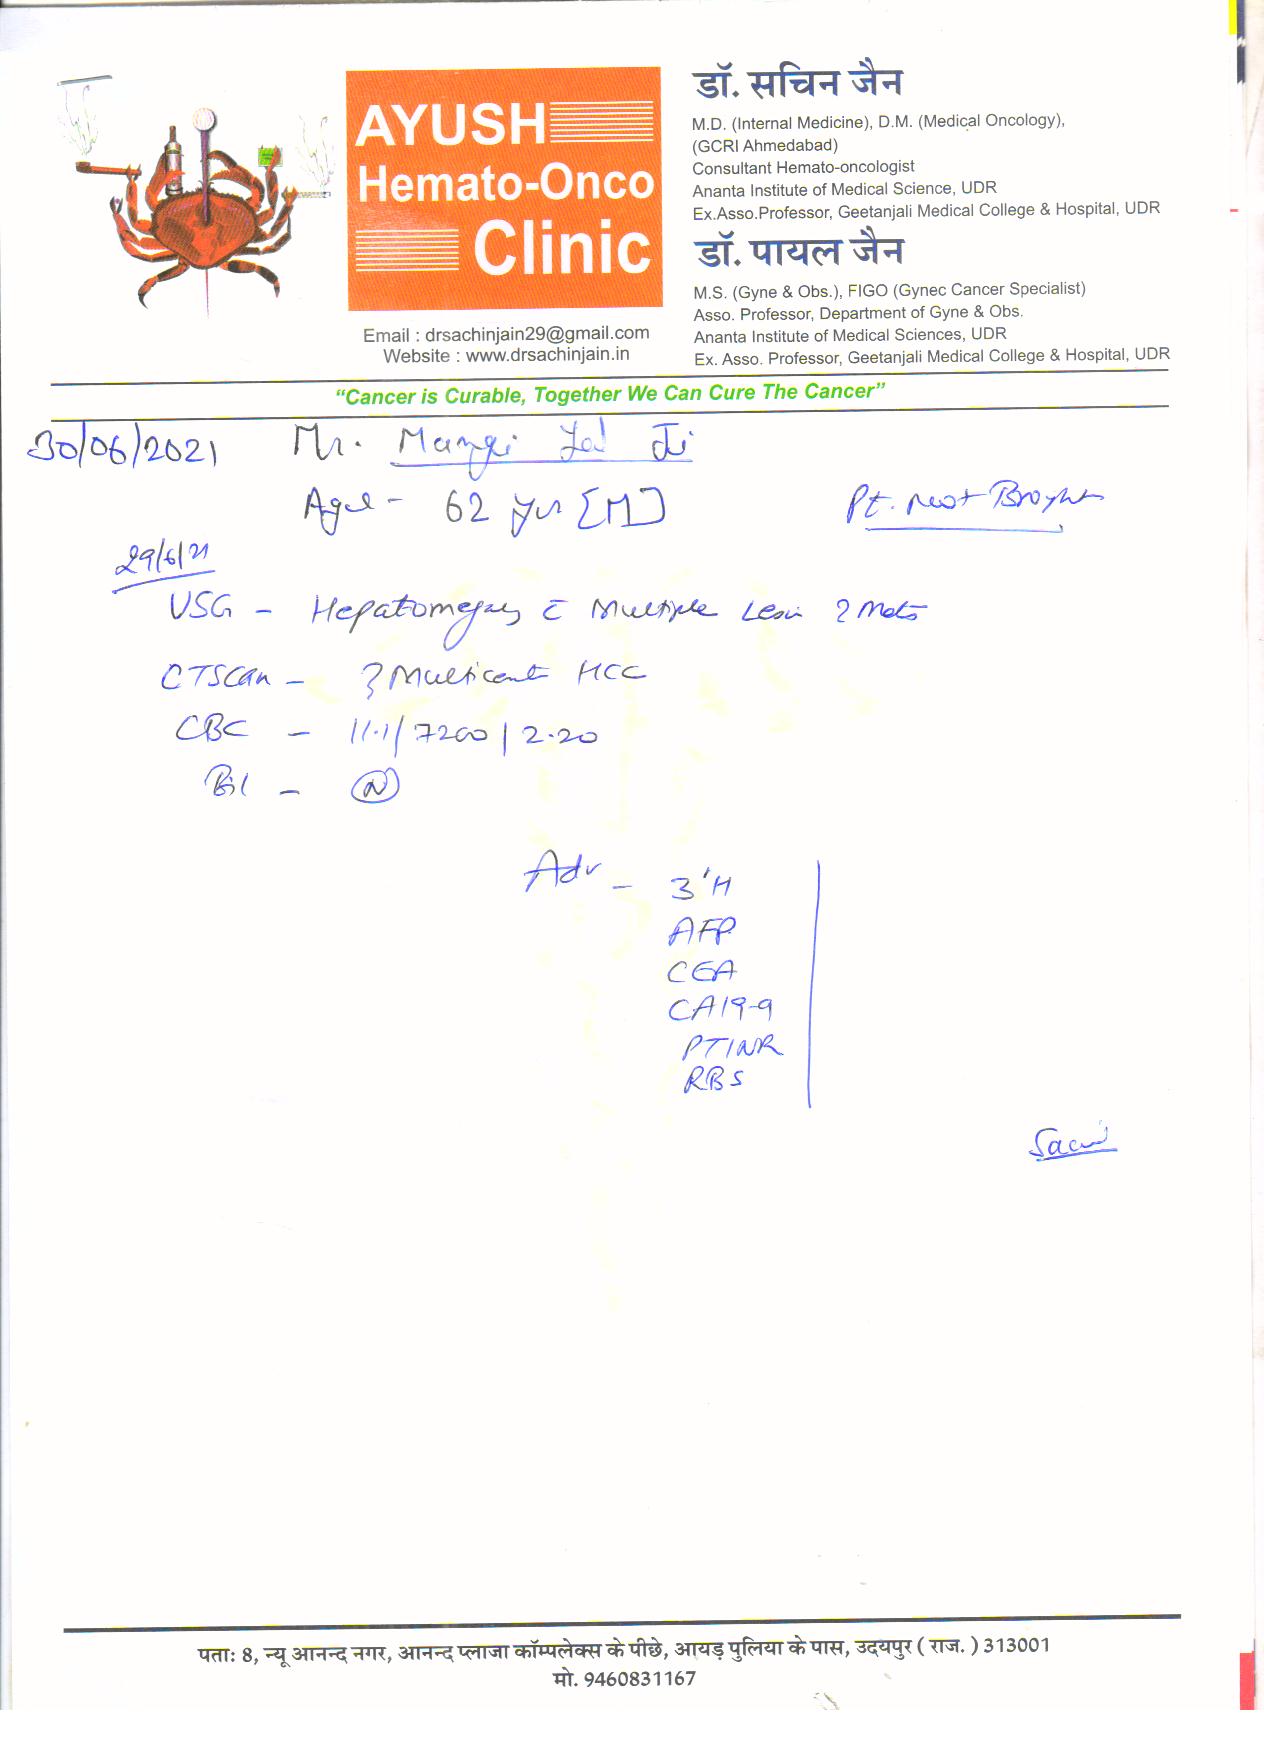 AYUSH
Hemato-Onco
Clinic
Email : drsachinjain29@gmail.com
Website : www.drsachinjain.in
डॉ. सचिन जैन
M.D. (Internal Medicine), D.M. (Medical Oncology),
(GCRI Ahmedabad)
Consultant Hemato-oncologist
Ananta Institute of Medical Science, UDR
Ex.Asso.Professor, Geetanjali Medical College & Hospital, UDR
डॉ. पायल जैन
M.S. (Gyne & Obs.), FIGO (Gynec Cancer Specialist)
Asso. Professor, Department of Gyne & Obs.
Ananta Institute of Medical Sciences, UDR
Ex. Asso. Professor, Geetanjali Medical College & Hospital, UDR
“Cancer is Curable, Together We Can Cure The Cancer”
30/06/2021 Mr. Mangi Lal Ji
Age - 62 yrs [M]
Pt. not
29/6/21
USG - Hepatomegaly c̄ Multiple Lesion ? Mets
CTSCan - ? Multicent HCC
CBC - 11.1/7200/2.20
Bil - (N)
Adv - 3'H
AFP
CEA
CA19-9
PTINR
RBS
पता: 8, न्यू आनन्द नगर, आनन्द प्लाजा कॉम्पलेक्स के पीछे, आयड़ पुलिया के पास, उदयपुर ( राज. ) 313001
मो. 9460831167